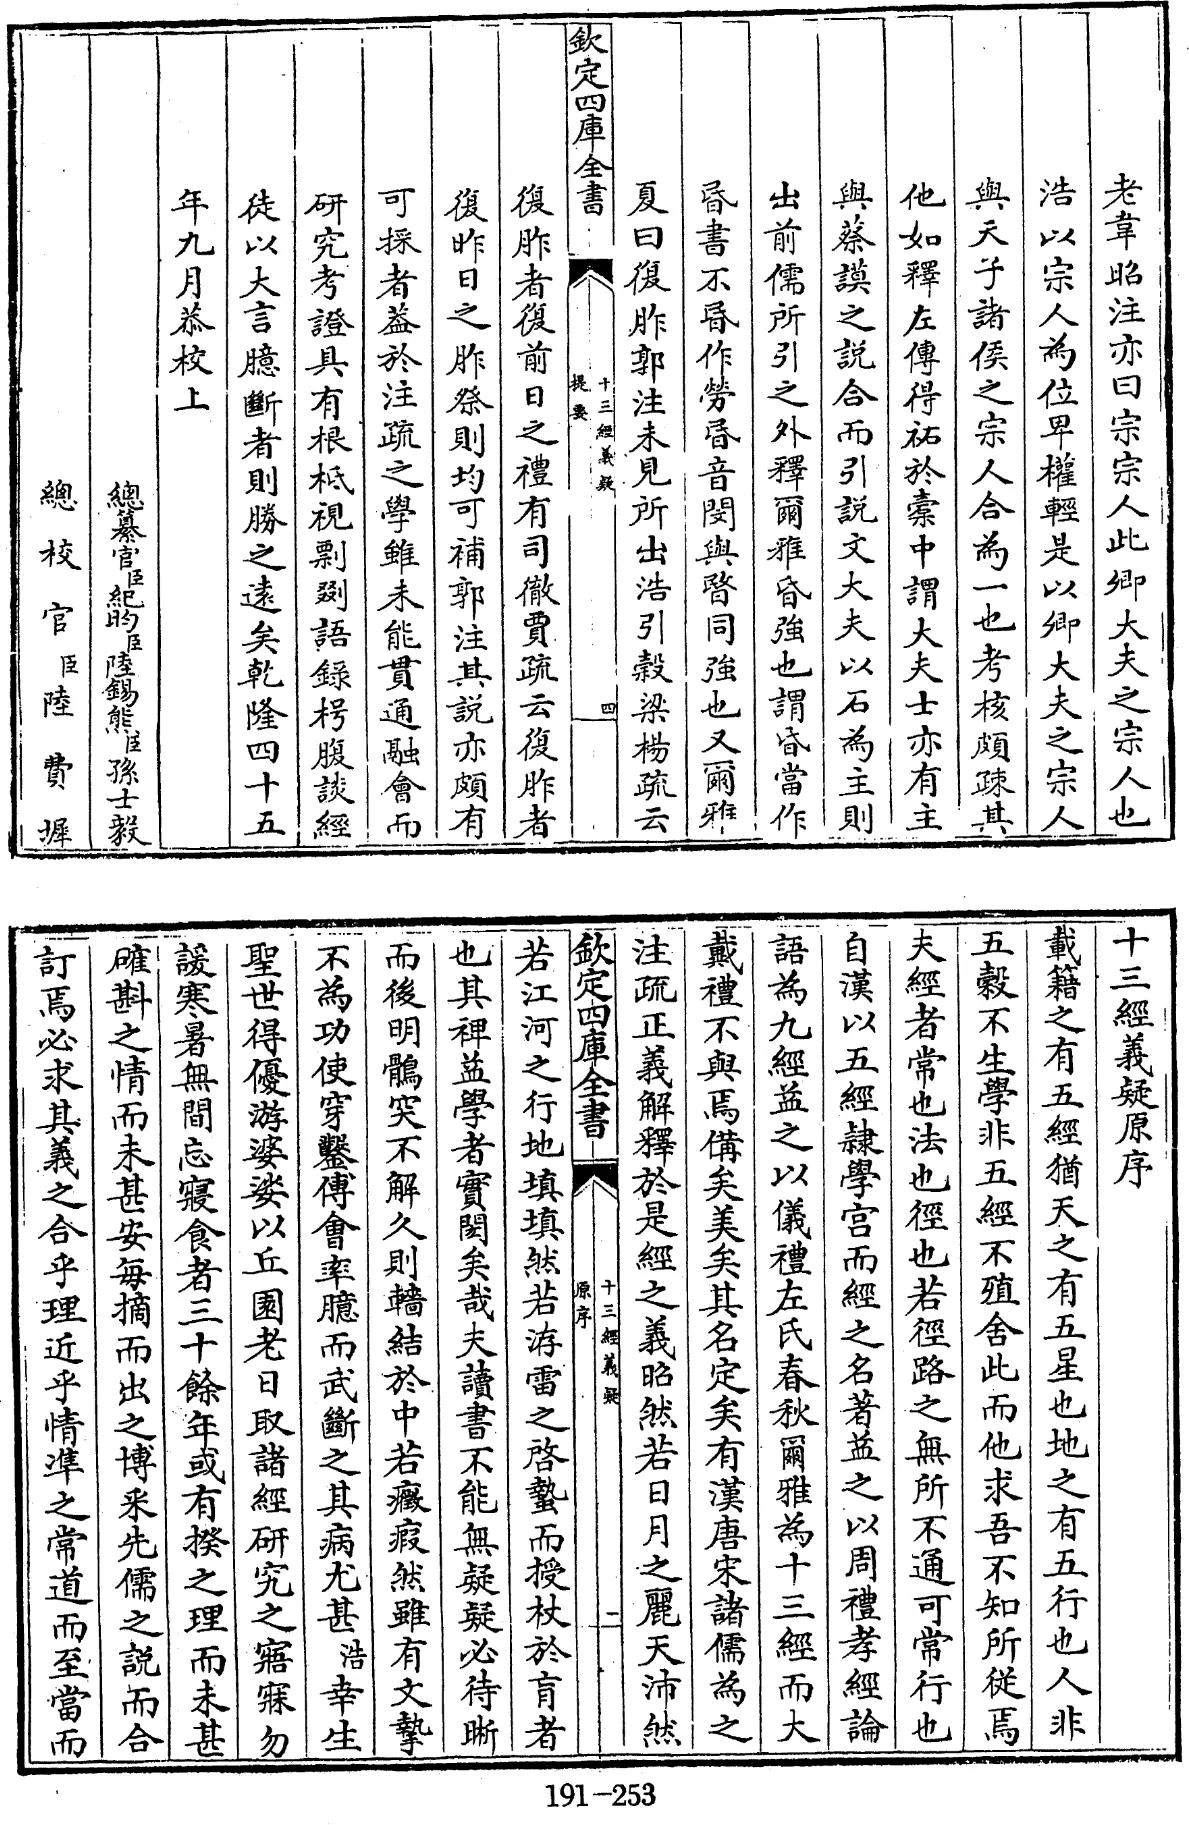 老韋昭注亦曰宗宗人此卿大夫之宗人也
浩以宗人為位卑權輕是以卿大夫之宗人
與天子諸侯之宗人合為一也考核頗疎其
他如釋左傳得祏於槖中謂大夫士亦有主
與蔡謨之説合而引説文大夫以石為主則
出前儒所引之外釋爾雅昏強也謂昏當作
暋書不昬作勞昬音閔與暋同強也又爾雅
夏曰復胙郭注未見所出浩引穀梁楊疏云
欽定四庫全書
十三經義疑
提要
四
復胙者復前日之禮有司徹賈疏云復胙者
復昨日之胙祭則均可補郭注其説亦頗有
可採者葢於注疏之學雖未能貫通融會而
研究考證具有根柢視剽剟語錄枵腹談經
徒以大言臆斷者則勝之遠矣乾隆四十五
年九月恭校上
總纂官臣紀昀臣陸錫熊臣孫士毅
總校官臣陸費墀
十三經義疑原序
載籍之有五經猶天之有五星也地之有五行也人非
五穀不生學非五經不殖舍此而他求吾不知所從焉
夫經者常也法也徑也若徑路之無所不通可常行也
自漢以五經隸學宫而經之名著益之以周禮孝經論
語為九經益之以儀禮左氏春秋爾雅為十三經而大
戴禮不與焉備矣美矣其名定矣有漢唐宋諸儒為之
注疏正義解釋於是經之義昭然若日月之麗天沛然
欽定四庫全書
十三經義疑
原序
二
若江河之行地填填然若洊雷之啓蟄而授杖於盲者
也其裨益學者實閎矣哉夫讀書不能無疑疑必待晰
而後明鶻突不解久則轖結於中若癥瘕然雖有文摯
不為功使穿鑿傅會率臆而武斷之其病尤甚浩幸生
聖世得優游婆娑以丘園老日取諸經研究之寤寐勿
諼寒暑無間忘寢食者三十餘年或有揆之理而未甚
確斟之情而未甚安每摘而出之博采先儒之説而合
訂焉必求其義之合乎理近乎情準之常道而至當而
191-253